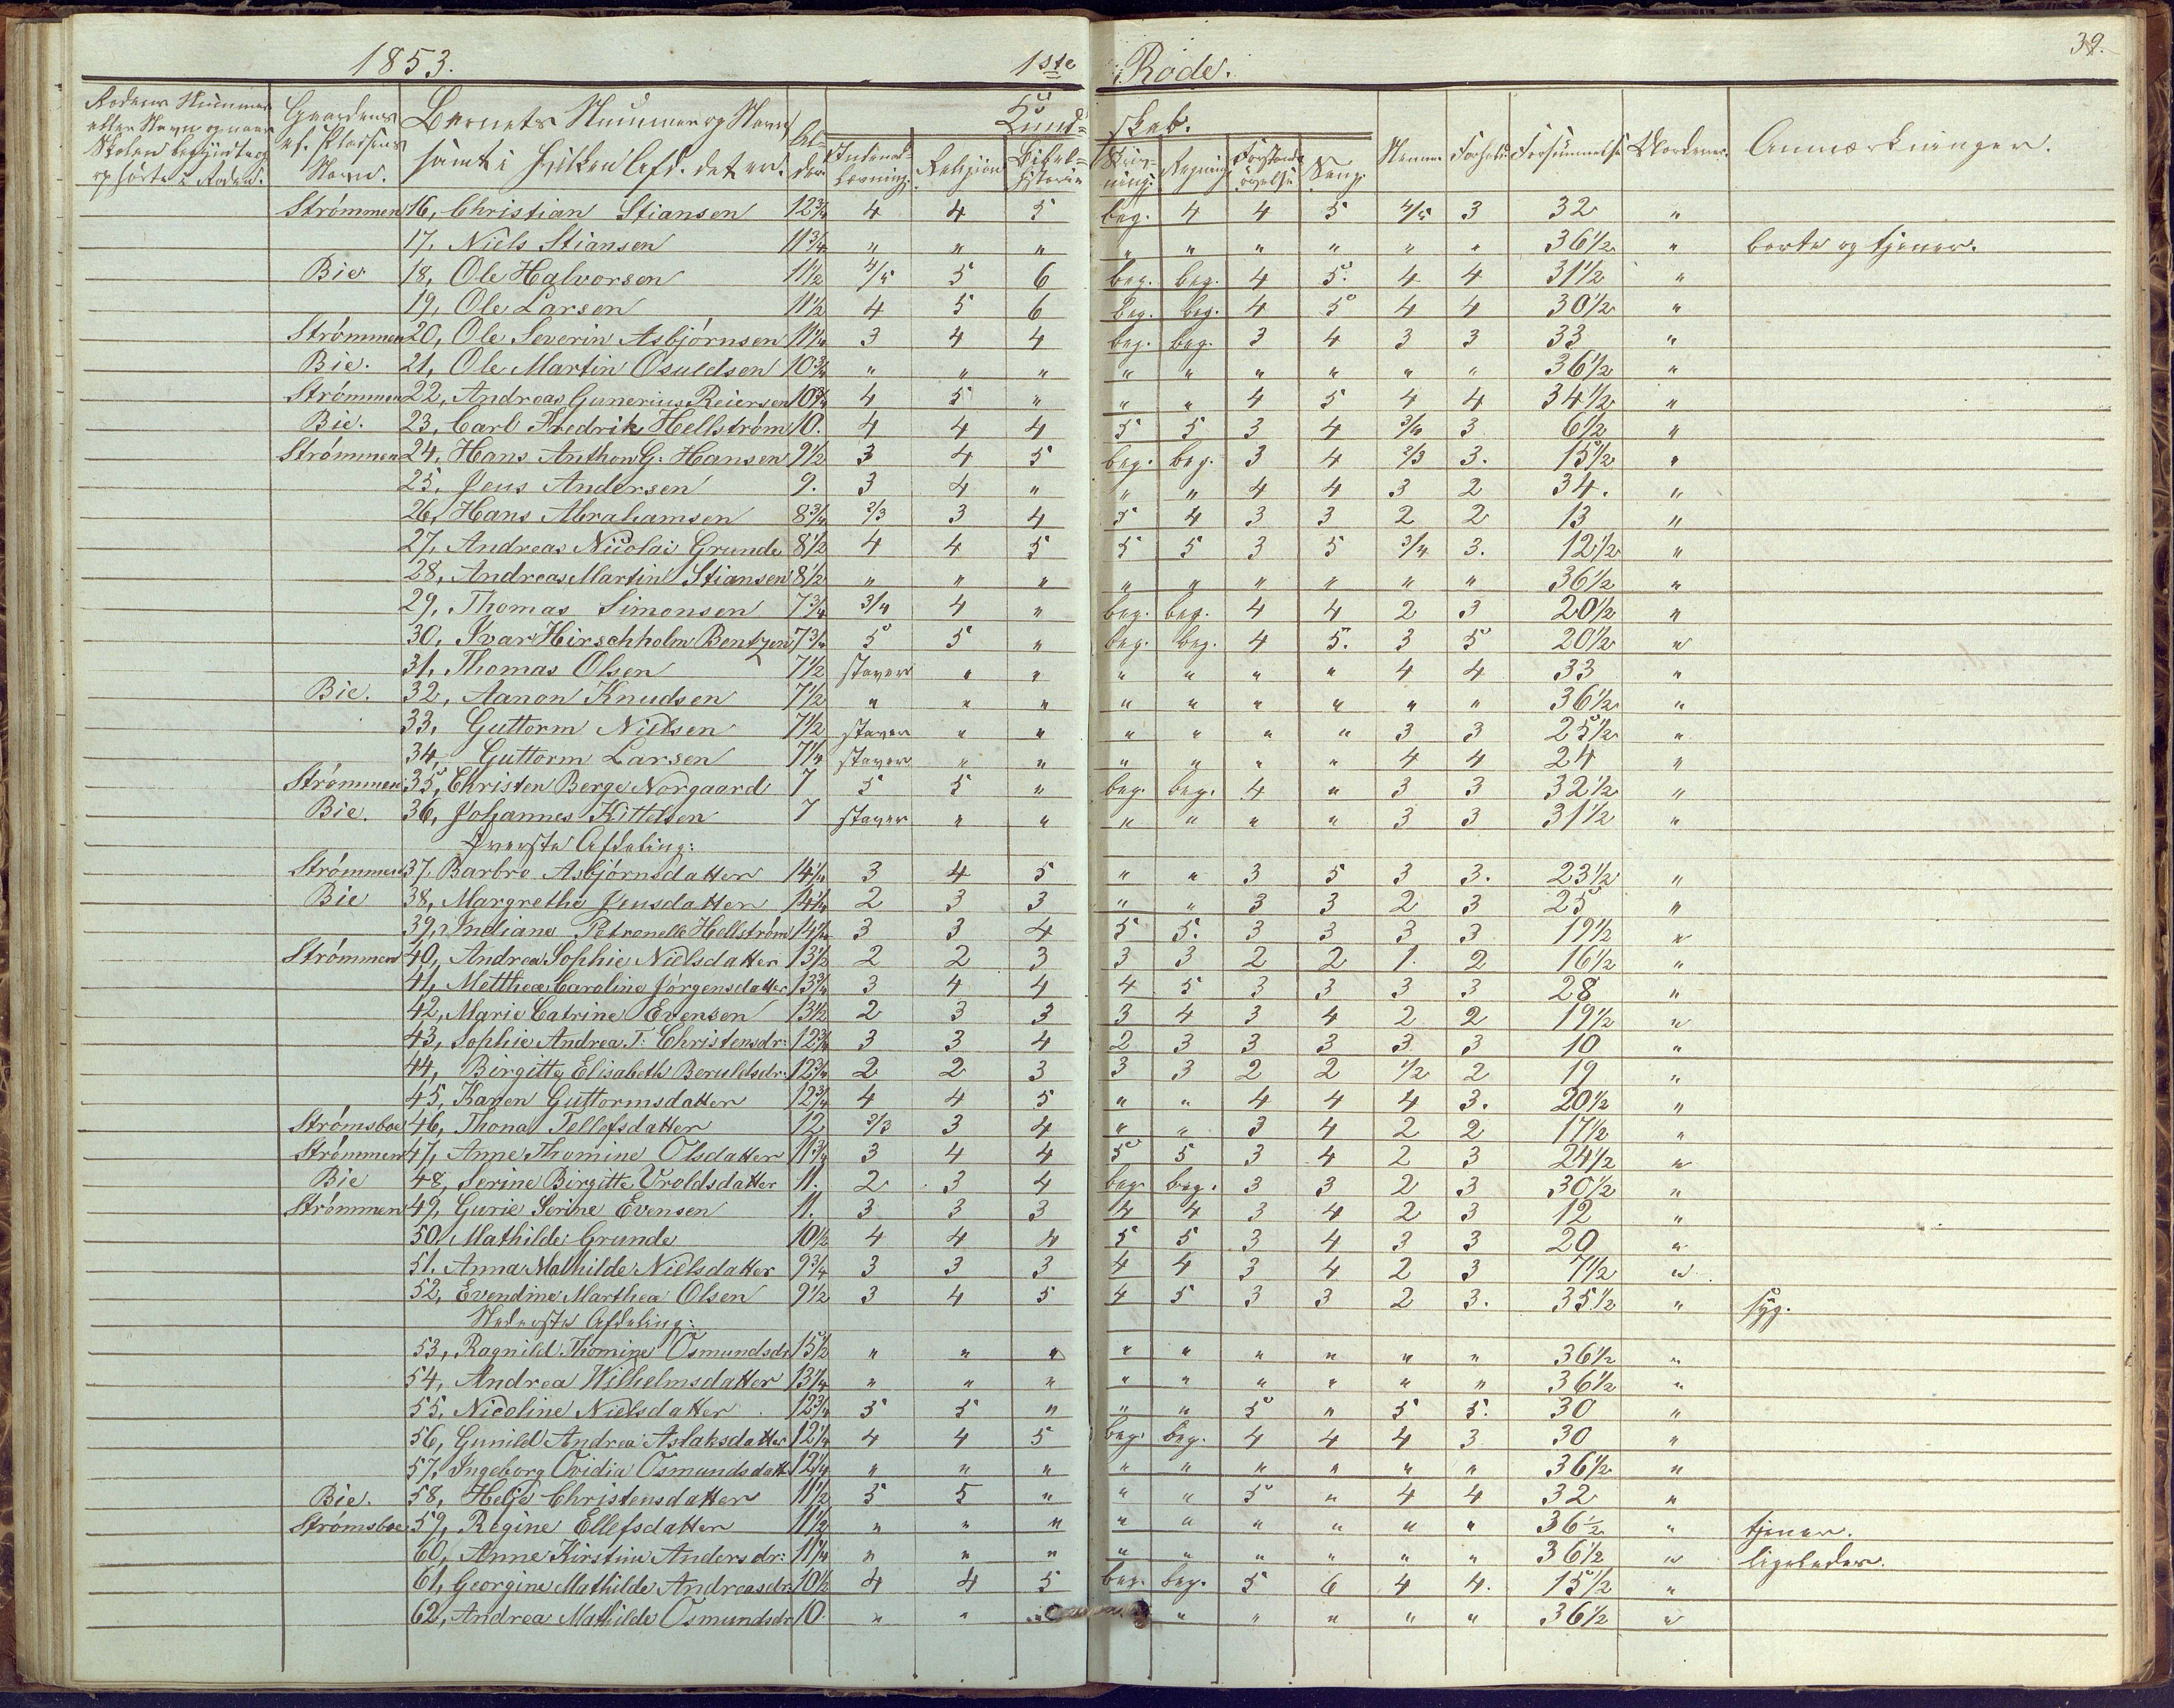 1853. 1ste Rode. 39.
Rodens Nummer eller Navn og naar Skolen begyndte og hørte i Roden. Gaardens ell. Pladsens Navn. Barnets Nummer og Navn samt i hvilken Afd. det er. Alder Kundskab. Indenadlæsning. Religion Bibelhistorie Skrivning. Regning Forstandsøvelse Sang. Nemme Forhold Forsømmelse Vurderer. Anmærkninger.
Strømmen 16, Christian Stiansen 12 3/4 4 4 5 beg. 4 4 5 4/5 3 32 "
17, Niels Stiansen 11 3/4 " " " " " " " " " 36 1/2 " borte og tjener.
Bie 18, Ole Halvorsen 11 1/2 4/5 5 6 beg. beg. 4 5. 4 4 31 1/2 "
19, Ole Larsen 11 1/2 4 5 6 beg. beg. 4 5 4 4 30 1/2 "
Strømmen 20, Ole Severin Asbjørnsen 11 1/4 3 4 4 beg. beg. 3 4 3 3 33 "
Bie. 21, Ole Martin Osuldsen 10 3/4 " " " " " " " " " 36 1/2 "
Strømmen 22, Andreas Gunerius Reiersen 10 3/4 4 5 " " " 4 5 4 4 34 1/2 "
Bie. 23, Carl Fredrik Hellstrøm 10. 4 4 4 5 5 3 4 3/4 3 6 1/2 "
Strømmen 24, Hans Anthon G. Hansen 9 1/2 3 4 5 beg. beg. 3 4 2/3 3. 15 1/2 "
25, Jens Andersen 9. 3 4 " " " 4 4 3 2 34. "
26, Hans Abrahamsen 8 3/4 2/3 3 4 5 4 3 3 2 2 13 "
27, Andreas Nicolai Grunde 8 1/2 4 4 5 5 5 3 5 3/4 3. 12 1/2 "
28, Andreas Martin Stiansen 8 1/2 " " " " " " " " " 36 1/2 "
29, Thomas Simonsen 7 3/4 3/4 4 " beg. beg. 4 4 2 3 20 1/2 "
30, Ivar Hirschholm Bentzen 7 3/4 5 5 " beg. beg. 4 5. 3 5 20 1/2 "
31, Thomas Olsen 7 1/2 staver " " " " " " 4 4 33 "
Bie. 32, Aanon Knudsen 7 1/2 " " " " " " " " " 36 1/2 "
33, Guttorm Nielsen 7 1/2 staver " " " " " " 3 3 25 1/2 "
34, Guttorm Larsen 7 1/4 staver " " " " " " 4 4 24 "
Strømmen 35, Christen Berge Norgaard 7 5 5 " beg. beg. 4 " 3 3 32 1/2 "
Bie. 36, Johannes Kittelsen 7 staver " " " " " " 3 3 31 1/2 "
Øverste Afdeling:
Strømmen 37, Barbro Asbjørnsdatter 14 1/4 3 4 5 " " 3 5 3 3. 23 1/2 "
Bie 38, Margrethe Jensdatter 14 1/4 2 3 3 " " 3 3 2 3 25 "
39, Indiane Petronelle Hellstrøm 14 1/4 3 3 4 5 5. 3 3 3 3 19 1/2 "
Strømmen 40, Andrea Sophie Nielsdatter 13 1/2 2 2 3 3 3 2 2 1. 2 16 1/2 "
41, Metthea Caroline Jørgensdatter 13 3/4 3 4 4 4 5 3 3 3 3 28 "
42, Marie Catrine Evensen 13 1/2 2 3 3 3 4 3 4 2 2 19 1/2 "
43, Sophie Andrea T. Christensdr: 12 3/4 3 3 4 2 3 3 3 3 3 10 "
44, Birgitte Elisabeth Beruldsdr: 12 3/4 2 2 3 3 3 2 2 1/2 2 19 "
45, Karen Guttormsdatter 12 3/4 4 4 5 " " 4 4 4 3. 20 1/2 "
Strømsboe 46, Thona Tellefsdatter 12 2/3 3 4 " " 3 4 2 2 17 1/2 "
Strømmen 47, Anne Thomine Olsdatter 11 3/4 3 4 4 5 5 3 4 2 3 24 1/2 "
Bie 48, Serine Birgitte Uroldsdatter 11. 2 3 4 beg. beg. 3 3 2 3 30 1/2 "
Strømmen 49, Gurie Serine Evensen 11. 3 3 3 4 4 3 4 2 3 12 "
50, Mathilde Grunde 10 1/2 4 4 4 5 5 3 4 3 3 20 "
51, Anna Mathilde Nielsdatter 9 3/4 3 3 3 4 4 3 4 2 3 7 1/2 "
52, Evendine Marthea Olsen 9 1/2 3 4 5 4 5 3 3 2 3. 35 1/2 " syg.
Nederste Afdeling:
53, Ragnild Thomine Osmundsdr 15 1/2 " " " " " " " " " 36 1/2 "
54, Andrea Wilhelmsdatter 13 1/4 " " " " " " " " " 36 1/2 "
55, Nicoline Nielsdatter 12 3/4 5 5 " " " 5 " 5 5. 30 "
56, Gunild Andrea Aslaksdatter 12 1/4 4 4 5 beg. beg. 4 4 4 3 30 "
57, Ingeborg Ovidia Osmundsdatt 12 1/4 " " " " " " " " " 36 1/2 "
Bie. 58, Helje Christensdatter 11 1/2 5 5 " " " 5 " 4 4 32 "
Strømsboe 59, Regine Ellefsdatter 11 1/2 " " " " " " " " " 36 1/2 " tjener.
60, Anne Kirstine Andersdr: 11 1/4 " " " " " " " " " 36 1/2 " ligeledes.
61, Georgine Mathilde Andreasdr: 10 1/2 4 4 5 beg. beg. 5 6 4 4. 15 1/2 "
62, Andrea Mathilde Osmundsdr 10. " " " " " " " " 36 1/2 "